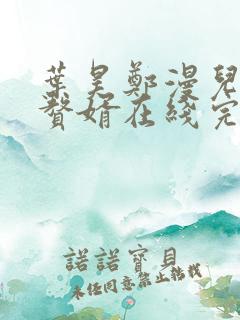 葉昊鄭漫兒
贅婿在綫完
諾諾寶貝
未經同意禁止轉載